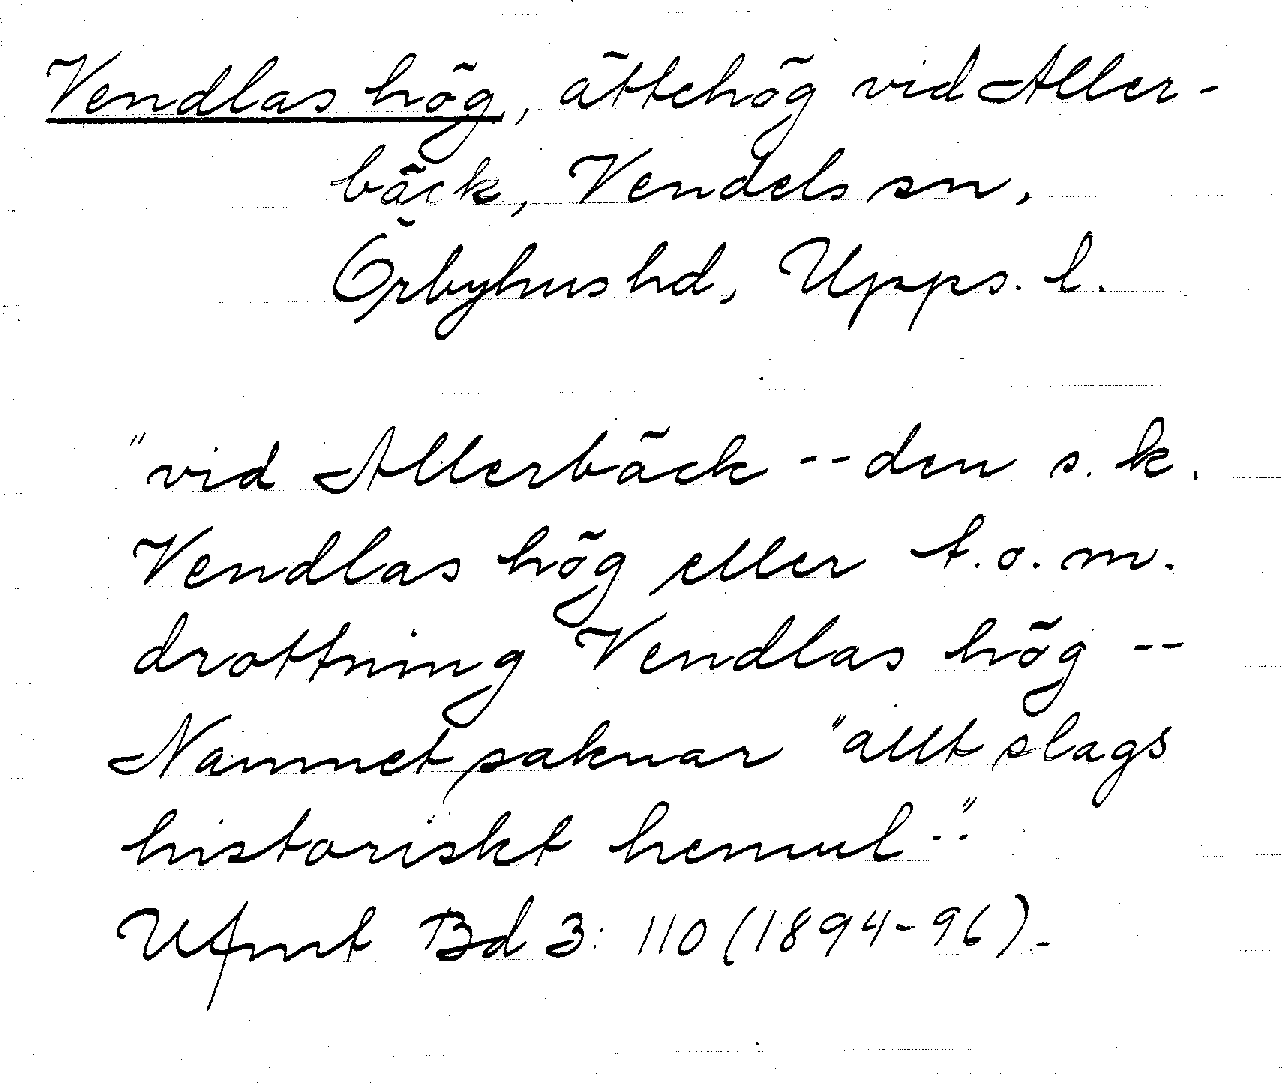 Vendlas hög, ättehög vid Aller-
bäck, Vendels sn,
Örbyhus hd, Upps. l.
"vid Allerbäck -- den s.k.
Vendlas hög eller t.o.m.
drottning Vendlas hög --
Namnet saknar "allt slags
historiskt hemul --"
Ufmt Bd 3: 110 (1894-96).